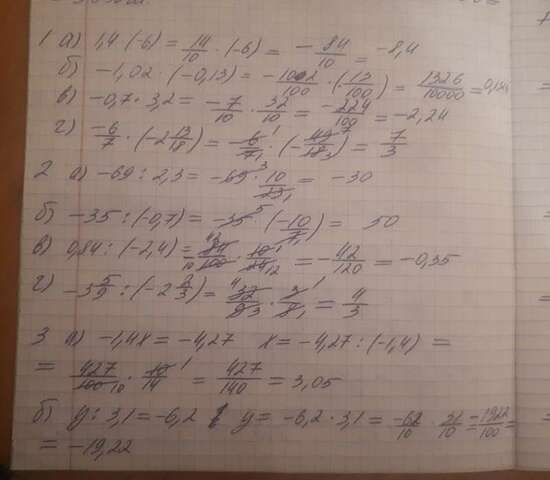 1 а) 1,4·(-6) = 14/10 · (-6) = -84/10 = -8,4
б) -1,02 · (-0,13) = -102/100 · (13/100) = 1326/10000 = 0,1326
в) -0,7 · 3,2 = -7/10 · 32/10 = -224/100 = -2,24
г) -6/7 · (-2 13/18) = -6/7 · (-49/18) = 7/3
2 а) -69 : 2,3 = -69 · 10/23 = -30
б) -35 : (-0,7) = -35 · (-10/7) = 50
в) 0,84 : (-2,4) = 84/100 · 10/24 = -42/120 = -0,35
г) -3 5/9 : (-2 2/3) = 32/9 · 3/8 = 4/3
3 а) -1,4x = -4,27 x = -4,27 : (-1,4) =
= 427/100 · 10/14 = 427/140 = 3,05
б) y : 3,1 = -6,2 y = -6,2 · 3,1 = -62/10 · 31/10 = -1922/100 =
= -19,22